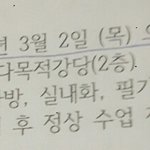 년 3월 2일 (목)
다목적강당(2층).
방, 실내화, 필기
후 정상 수업